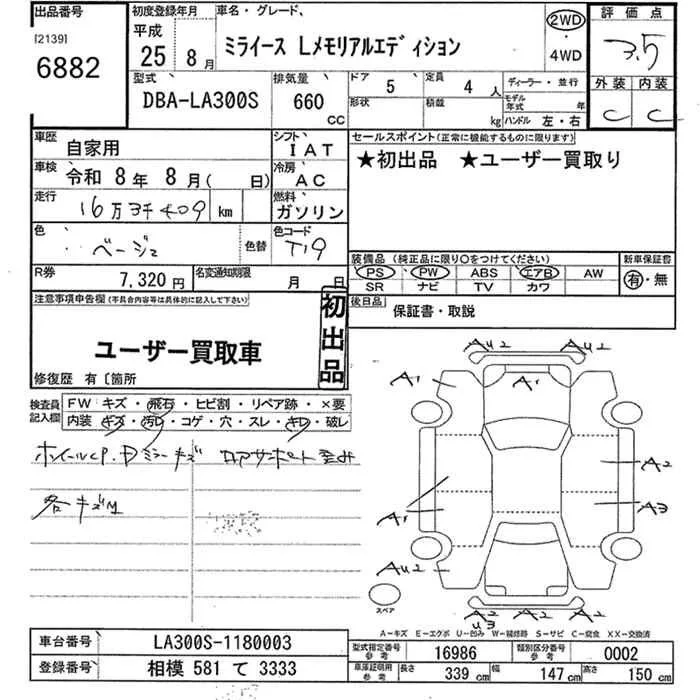 出品番号
[2139]
6882
初度登録年月
平成
25年 8月
車名・グレード、
ミライース Lメモリアルエディション
2WD
・
4WD
評価点
3.5
外装 内装
C C
型式
DBA-LA300S
排気量
660
CC
ドア 5 定員 4 人
形状 積載 kg
ディーラー・並行
モデル年式 年
ハンドル 左・右
車歴 自家用
シフト IAT
車検 令和 8年 8月( 日)
冷房 AC
走行 16万3千409 km
燃料 ガソリン
色 ベージュ 色替
色コード T19
R券 7,320円
名変通知期限 月 日
セールスポイント(正常に機能するものに限ります)
★初出品 ★ユーザー買取り
装備品 (純正品に限り○をつけてください)
新車保証書
PS PW ABS エアB AW
SR ナビ TV カワ
有・無
後日品
保証書・取説
注意事項申告欄(不具合内容等は具体的に記入して下さい)
初出品
ユーザー買取車
修復歴 有〔箇所
検査員記入欄
FW キズ・飛石・ヒビ割・リペア跡・×要
内装 キズ・汚レ・コゲ・穴・スレ・キレ・破レ
ホイールCP、Dミラーキズ ロアサポート歪み
各キズM
AU2 AU2
A1 A1
A2
A1 A3
AU2 AU2
A2 A2 A2
U3
スペア
A-キズ E-エクボ U-凹み W-補修跡 S-サビ C-腐食 XX-交換済
車台番号 LA300S-1180003
登録番号 相模 581 て 3333
型式指定番号 参考 16986
類別区分番号 参考 0002
車庫証明用 参考 長さ 339 cm 幅 147 cm 高さ 150 cm